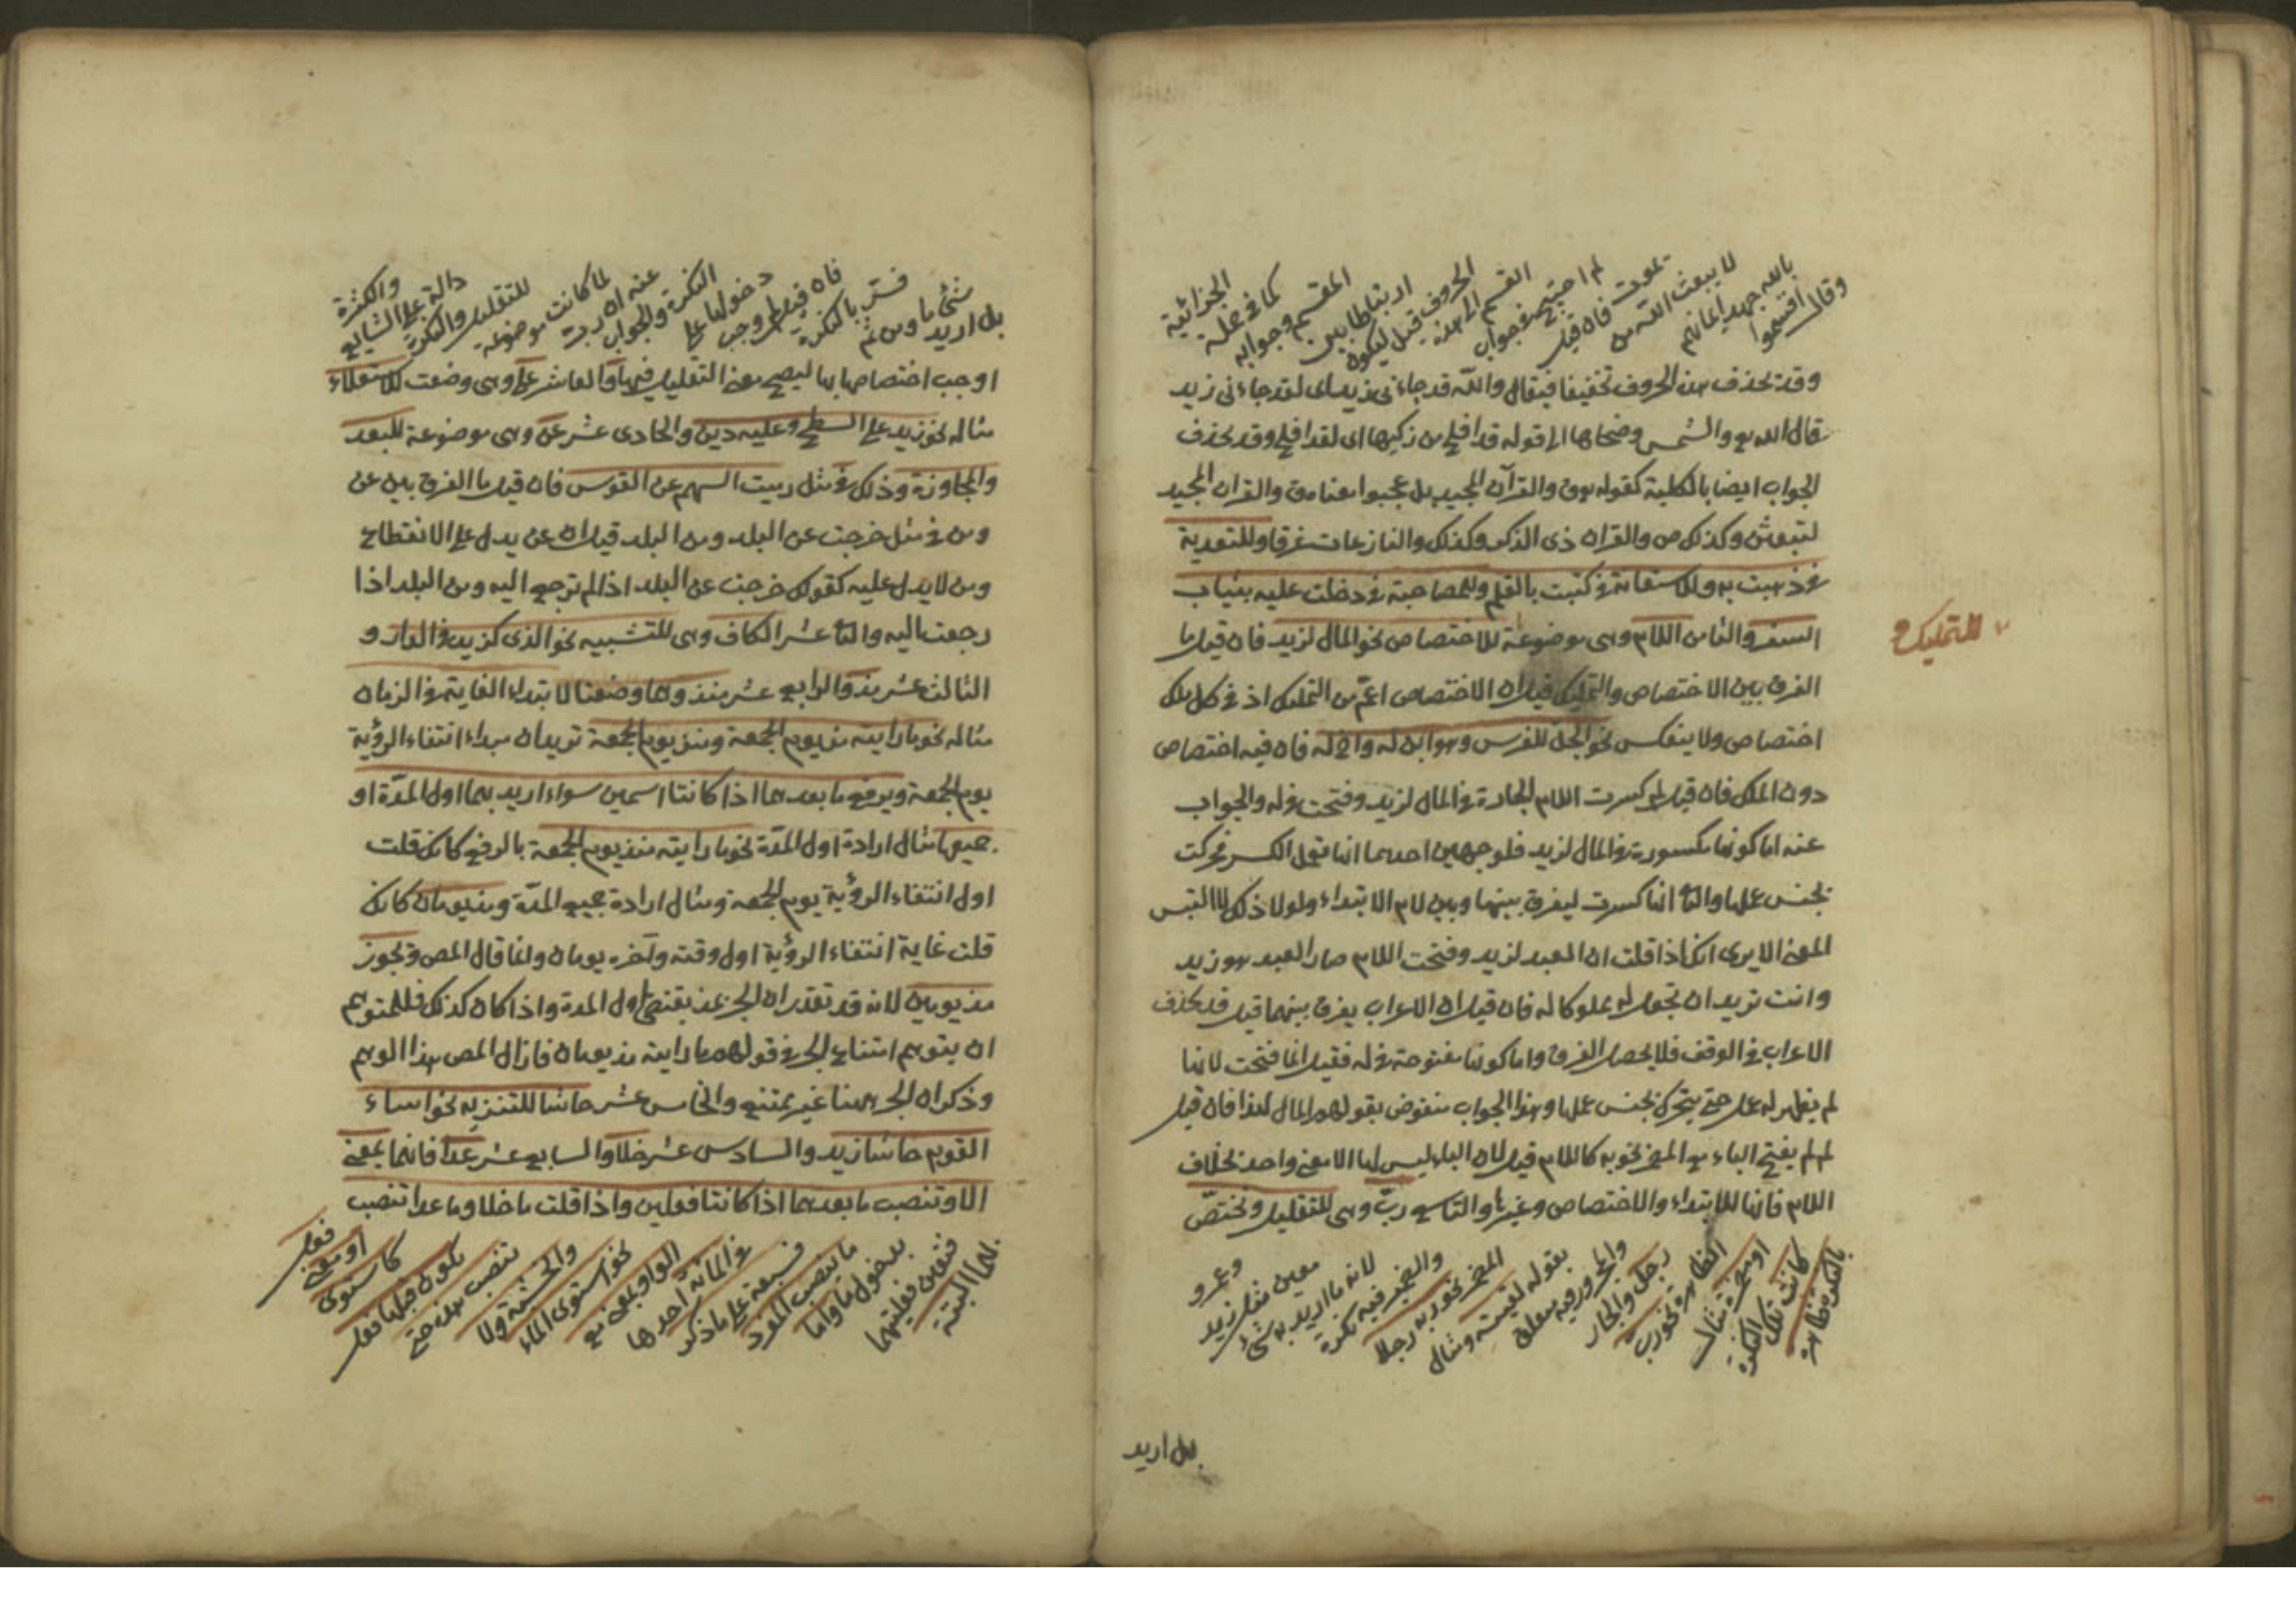 وقال اقسموا بالله جهد ايمانهم لا يبعث الله من يموت فان قيل لم احتيج في جواب القسم الى هذه الحروف قيل ليكون ارتباطا بين المقسم وجوابه كما في جملة الجزائية
وقد تحذف هذه الحروف تخفيفا فيقال والله قد جاءني زيد اى لقد جاءنى زيد
قال الله تع والشمس وضحاها الى قوله قد افلح من زكيها اى لقد افلح وقد يحذف
الجواب ايضا بالكلية كقوله تع ق والقرآن المجيد بل عجبوا معناه ق والقران المجيد
لتبعثن وكذلك ص والقران ذى الذكر وكذلك والنازعات غرقا وللتعدية
نحو ذهبت به وللاستعانة نحو كتبت بالقلم وللمصاحبة نحو دخلت عليه بثياب
السفر والثامن اللام وهى موضوعة للاختصاص نحو المال لزيد فان قيل ما
للتمليك و
الفرق بين الاختصاص والتمليك قيل ان الاختصاص اعم من التمليك اذ في كل ملك
اختصاص ولا ينعكس نحو الجل للفرس وهو ابن له واخ له فان فيه اختصاص
دون الملك فان قيل لم كسرت اللام الجارة في المال لزيد وفتحت في له والجواب
عنه اما كونها مكسورة في المال لزيد فلوجهين احدهما انها تعمل الكسر فحركت
بجنس عملها والثا انها كسرت ليفرق بينها وبين لام الابتداء ولولا ذلك لالتبس
المعنى الا يرى انك اذا قلت ان العبد لزيد وفتحت اللام صار العبد هو زيد
وانت تريد ان تجعله مملوكا له فان قيل ان الاعراب يفرق بينهما قيل قد يحذف
الاعراب في الوقف فلا يحصل الفرق واما كونها مفتوحة في له فقيل انما فتحت لانها
لم يظهر له عمل حتى يتحرك بجنس عملها وهذا الجواب منقوض بقولهم المال لهذا فان قيل
لم لم يفتح الباء مع المضمر نحو به كاللام قيل لان الباء ليس لها الا معنى واحد بخلاف
اللام فانها للابتداء والاختصاص وغيرها والتاسع رب وهى للتقليل وتختص
بالنكرة ظاهرة كانت تلك النكرة او مضمرة مثال الظاهرة نحو رب رجل والجار والمجرور فيه متعلق بقوله لقيته ومثال المضمر نحو ربه رجلا والضمير فيه نكرة لانه ما اريد به شئ معين مثل زيد وعمرو
بل اريد
بل اريد شئ ما ومن ثم فسر بالنكرة فان قيل لم وجب دخولها على النكرة والجواب عنه ان رب لما كانت موضوعة للتقليل والنكرة دالة على الشايع والكثرة
اوجب اختصاصها بها ليصح معنى التقليل فيها والعاشر على وهى وضعت للاستعلاء
مثاله نحو زيد على السطح وعليه دين والحادى عشر عن وهى موضوعة للبعد
والمجاوزة وذلك في مثل رميت السهم عن القوس فان قيل ما الفرق بين عن
ومن في مثل خرجت عن البلد ومن البلد قيل ان عن يدل على الانقطاع
ومن لا يدل عليه كقولك خرجت عن البلد اذا لم ترجع اليه ومن البلد اذا
رجعت اليه والثا عشر الكاف وهى للتشبيه نحو الذى كزيد في الدار و
الثالث عشر مذ والرابع عشر منذ وهما وضعتا لابتداء الغاية في الزمان
مثاله نحو ما رايته مذ يوم الجمعة ومنذ يوم الجمعة تريد ان مبداء انتفاء الرؤية
يوم الجمعة ويرفع ما بعدهما اذا كانتا اسمين سواء اريد بهما اول المدة او
جميعها مثال ارادة اول المدة نحو ما رايته منذ يوم الجمعة بالرفع كانك قلت
اول انتفاء الرؤية يوم الجمعة ومثال ارادة جميع المدة ومنذ يومان كانك
قلت غاية انتفاء الرؤية اول وقته وآخره يومان وانما قال المص وتجوز
مذ يومين لانه قد تقدر ان الجر بمذ يقتضى اول المدة واذا كان كذلك فللمتوهم
ان يتوهم امتناع الجر في قولهم ما رايته مذ يومان فازال المص هذا الوهم
وذكر ان الجر ههنا غير ممتنع والخامس عشر حاشا للتنزيه نحو اساء
القوم حاشا زيد والسادس عشر خلا والسابع عشر عدا فانهما بمعنى
الا وتنصب ما بعدهما اذا كانتا فعلين واذا قلت ما خلا وما عدا تنصب
بهما البتة فتعين فعليتهما بدخول ما واما ما تنصب المفرد فسبعة على ما ذكر في المائة احدها الواو بمعنى مع نحو استوى الماء والخشبة ولا تنصب هذه حتى يكون قبلها فعل كاستوى او معنى فعل